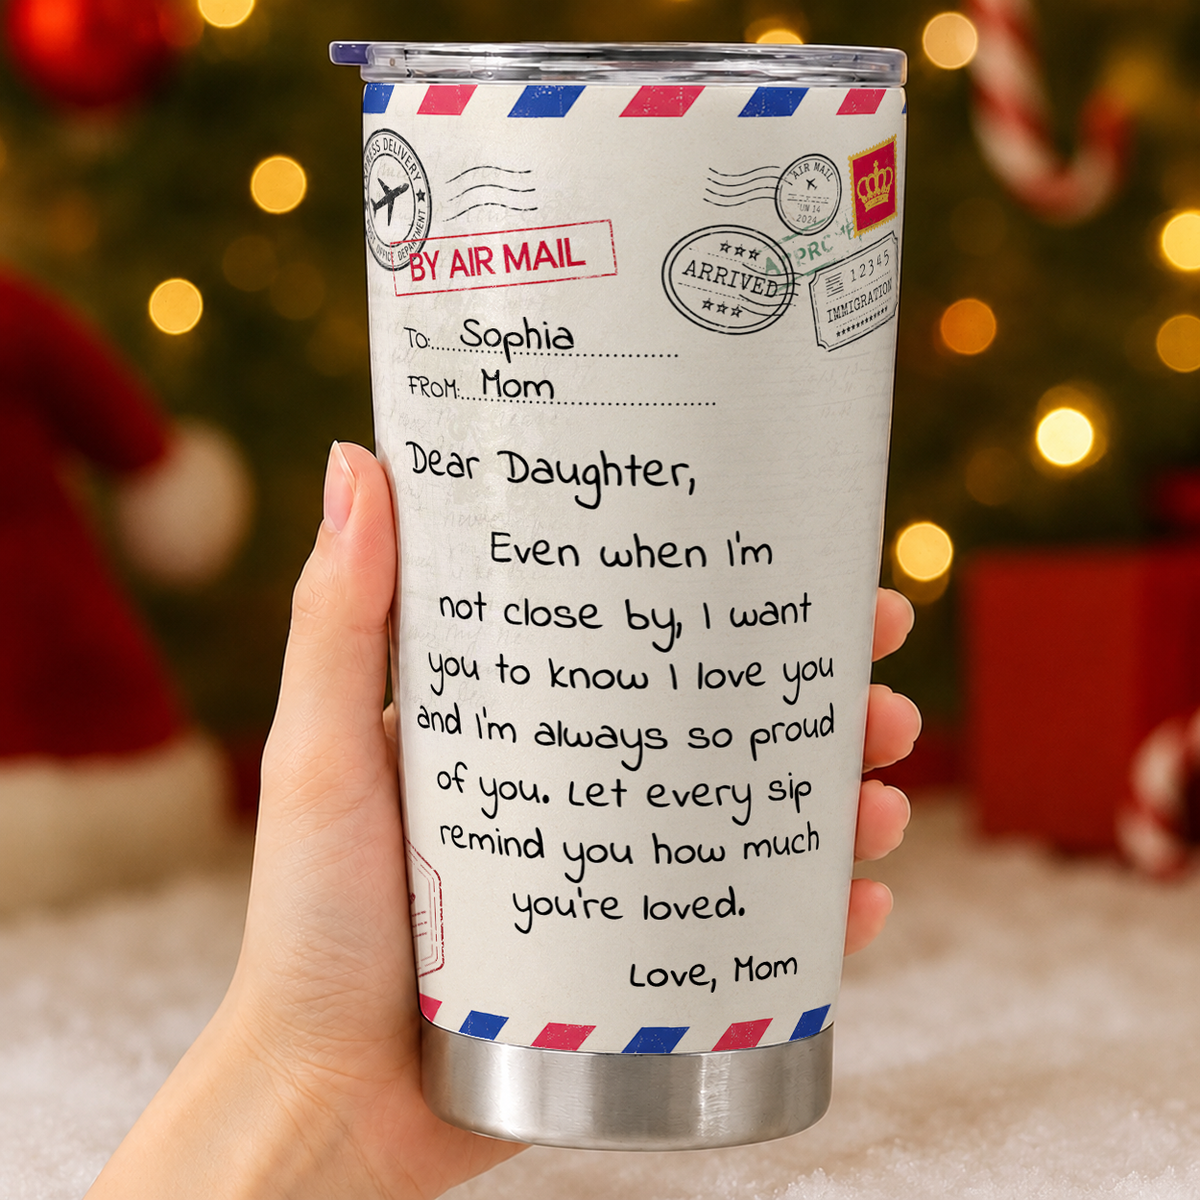 EXPRESS DELIVERY
POST OFFICE DEPARTMENT
BY AIR MAIL
AIR MAIL
JUN 14
2024
APPROVED
ARRIVED
12345
IMMIGRATION
TO: Sophia
FROM: Mom
Dear Daughter,
Even when I'm
not close by, I want
you to know I love you
and I'm always so proud
of you. Let every sip
remind you how much
you're loved.
Love, Mom